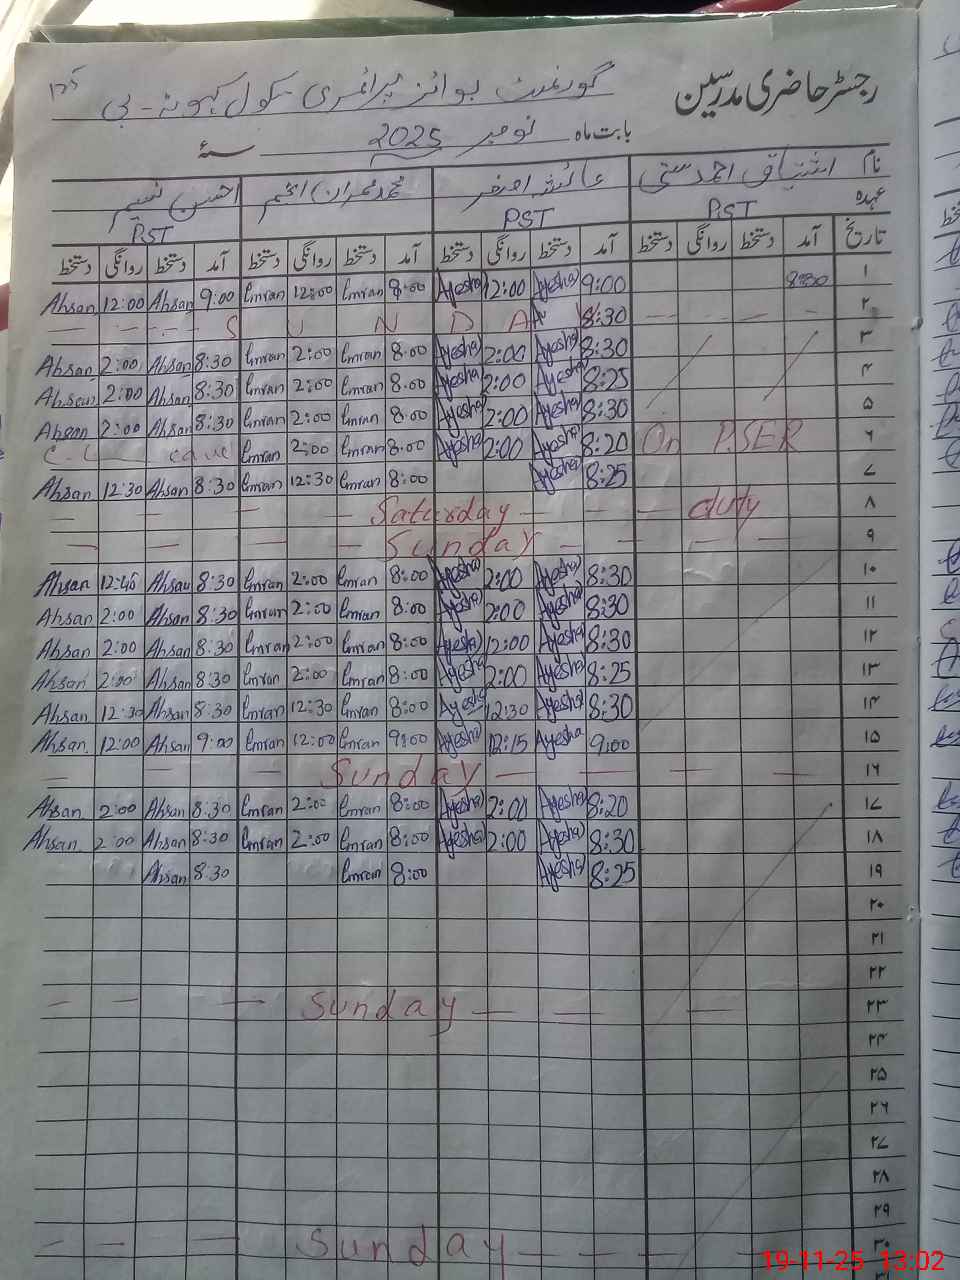 ۱۲۵
رجسٹر حاضری مدرسین گورنمنٹ بوائز پرائمری سکول کہوٹہ - بی
بابت ماہ نومبر 2025 سنہ
نام اشتیاق احمد ستی عائشہ اصغر محمد عمران انجم احسن نسیم
عہدہ PST PST PST
تاریخ آمد دستخط روانگی دستخط آمد دستخط روانگی دستخط آمد دستخط روانگی دستخط آمد دستخط روانگی دستخط
Ahsan 12:00 Ahsan 9:00 Imran 12:00 Imran 8:00 Ayesha 12:00 Ayesha 9:00 8:30 ۱
SUNDAY 8:30 ۲
Ahsan 2:00 Ahsan 8:30 Imran 2:00 Imran 8:00 Ayesha 2:00 Ayesha 8:30 ۳
Ahsan 2:00 Ahsan 8:30 Imran 2:00 Imran 8:00 Ayesha 2:00 Ayesha 8:25 ۴
Ahsan 2:00 Ahsan 8:30 Imran 2:00 Imran 8:00 Ayesha 2:00 Ayesha 8:30 ۵
C.L Imran 2:00 Imran 8:00 Ayesha 2:00 Ayesha 8:20 On PSER ۶
Ahsan 12:30 Ahsan 8:30 Imran 12:30 Imran 8:00 Ayesha 8:25 ۷
Saturday duty ۸
Sunday ۹
Ahsan 12:45 Ahsan 8:30 Imran 2:00 Imran 8:00 Ayesha 2:00 Ayesha 8:30 ۱۰
Ahsan 2:00 Ahsan 8:30 Imran 2:00 Imran 8:00 Ayesha 2:00 Ayesha 8:30 ۱۱
Ahsan 2:00 Ahsan 8:30 Imran 2:00 Imran 8:00 Ayesha 12:00 Ayesha 8:30 ۱۲
Ahsan 2:00 Ahsan 8:30 Imran 2:00 Imran 8:00 Ayesha 2:00 Ayesha 8:25 ۱۳
Ahsan 12:30 Ahsan 8:30 Imran 12:30 Imran 8:00 Ayesha 12:30 Ayesha 8:30 ۱۴
Ahsan 12:00 Ahsan 9:00 Imran 12:00 Imran 9:00 Ayesha 12:15 Ayesha 9:00 ۱۵
Sunday ۱۶
Ahsan 2:00 Ahsan 8:30 Imran 2:00 Imran 8:00 Ayesha 2:00 Ayesha 8:20 ۱۷
Ahsan 2:00 Ahsan 8:30 Imran 2:00 Imran 8:00 Ayesha 2:00 Ayesha 8:30 ۱۸
Ahsan 8:30 Imran 8:00 Ayesha 8:25 ۱۹
۲۰
۲۱
۲۲
Sunday ۲۳
۲۴
۲۵
۲۶
۲۷
۲۸
۲۹
Sunday ۳۰
19-11-25 13:02